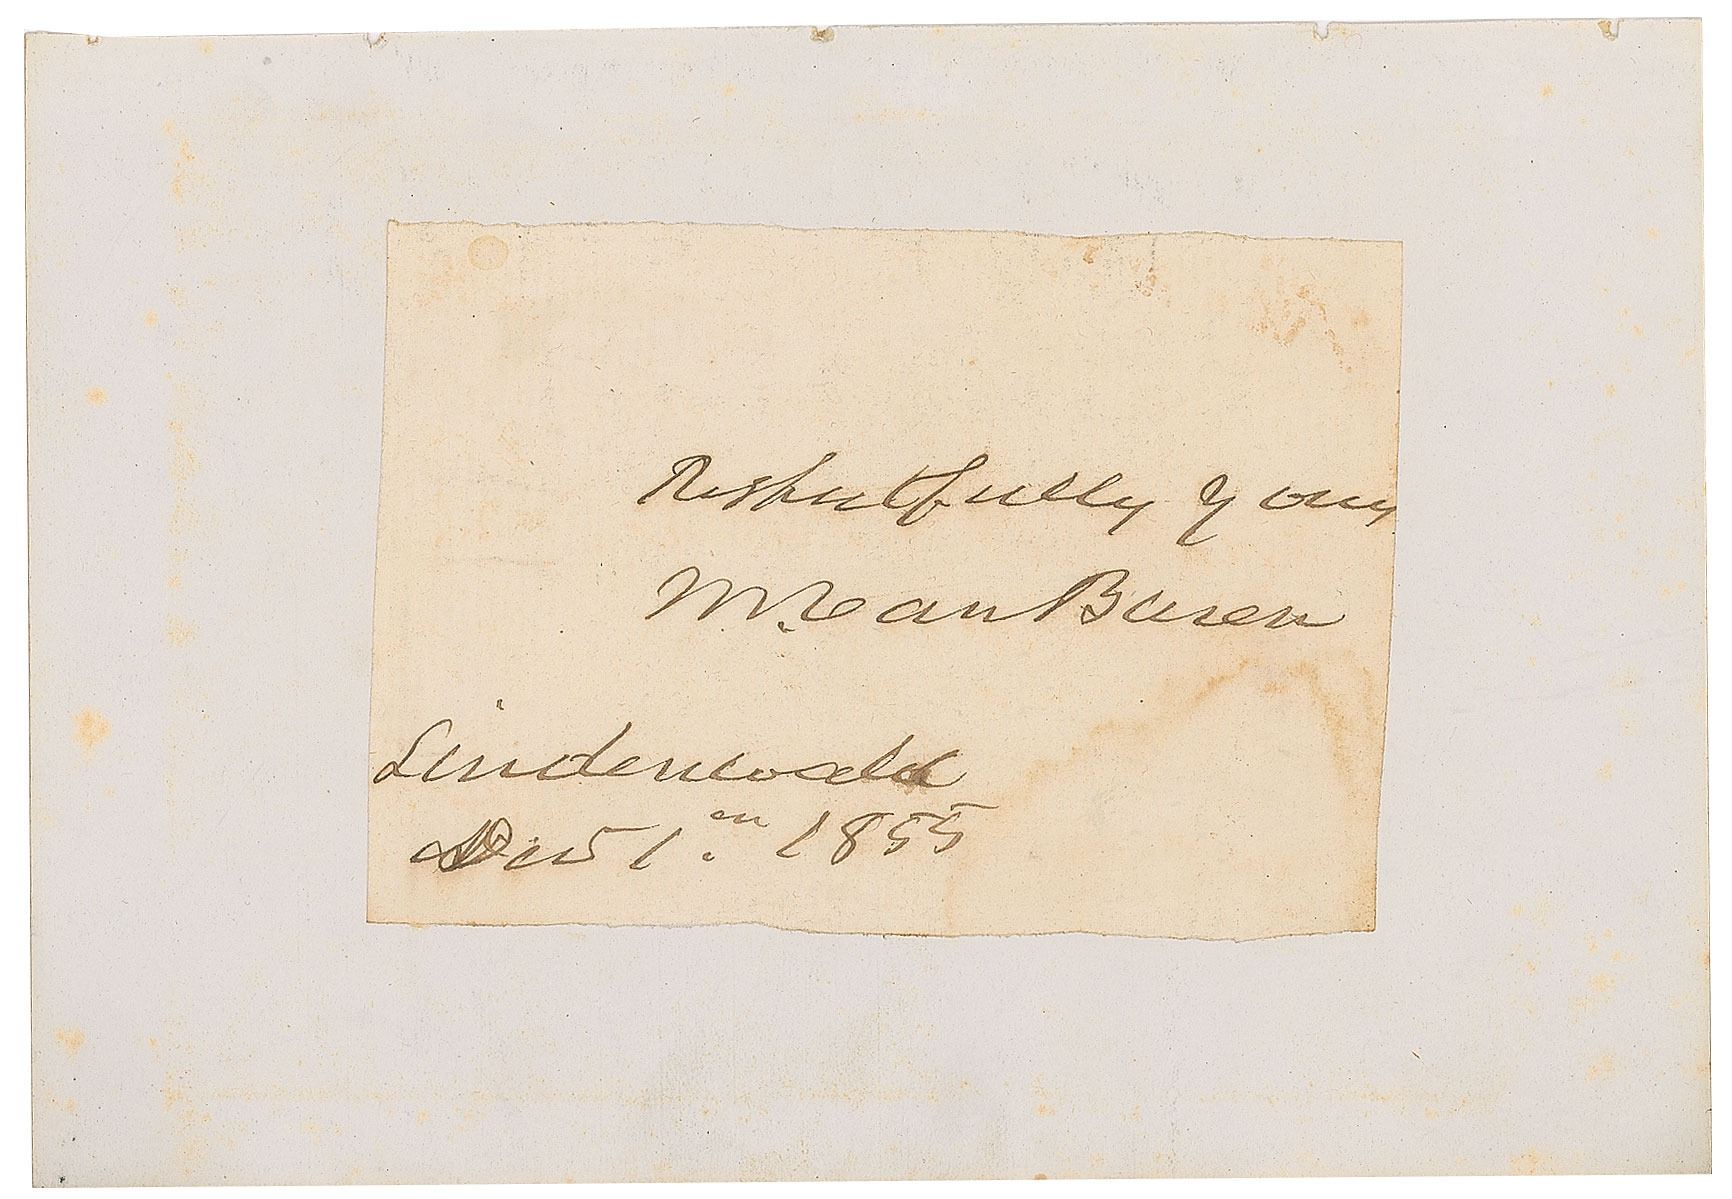 Respectfully yours
M. Van Buren
Lindenwald
Decr 1. 1855